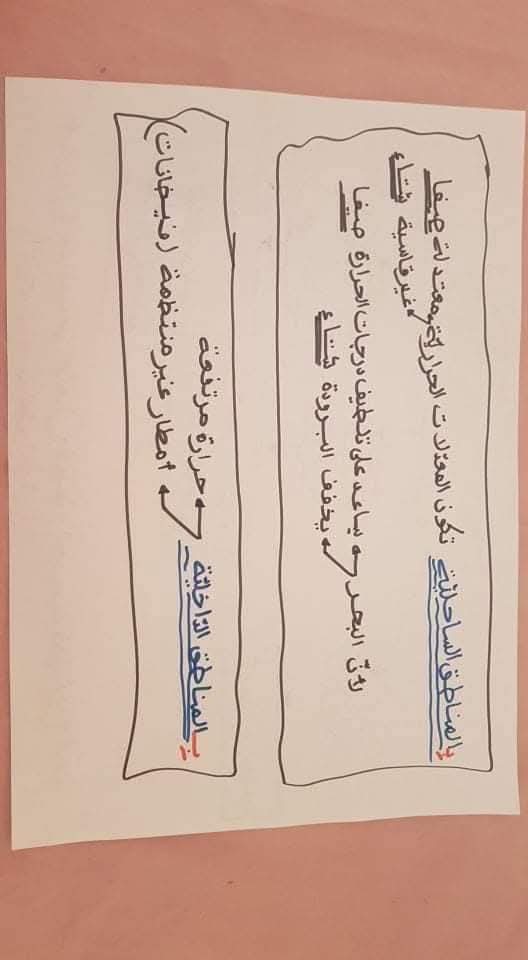 بالمناطق الساحلية تكون المعدلات الحرارية معتدلة صيفا
غير قاسية شتاء
لأن البحر يساعد على تلطيف درجات الحرارة صيفا
يخفف البرودة شتاء
بالمناطق الداخلية حرارة مرتفعة
أمطار غير منتظمة (فيضانات)